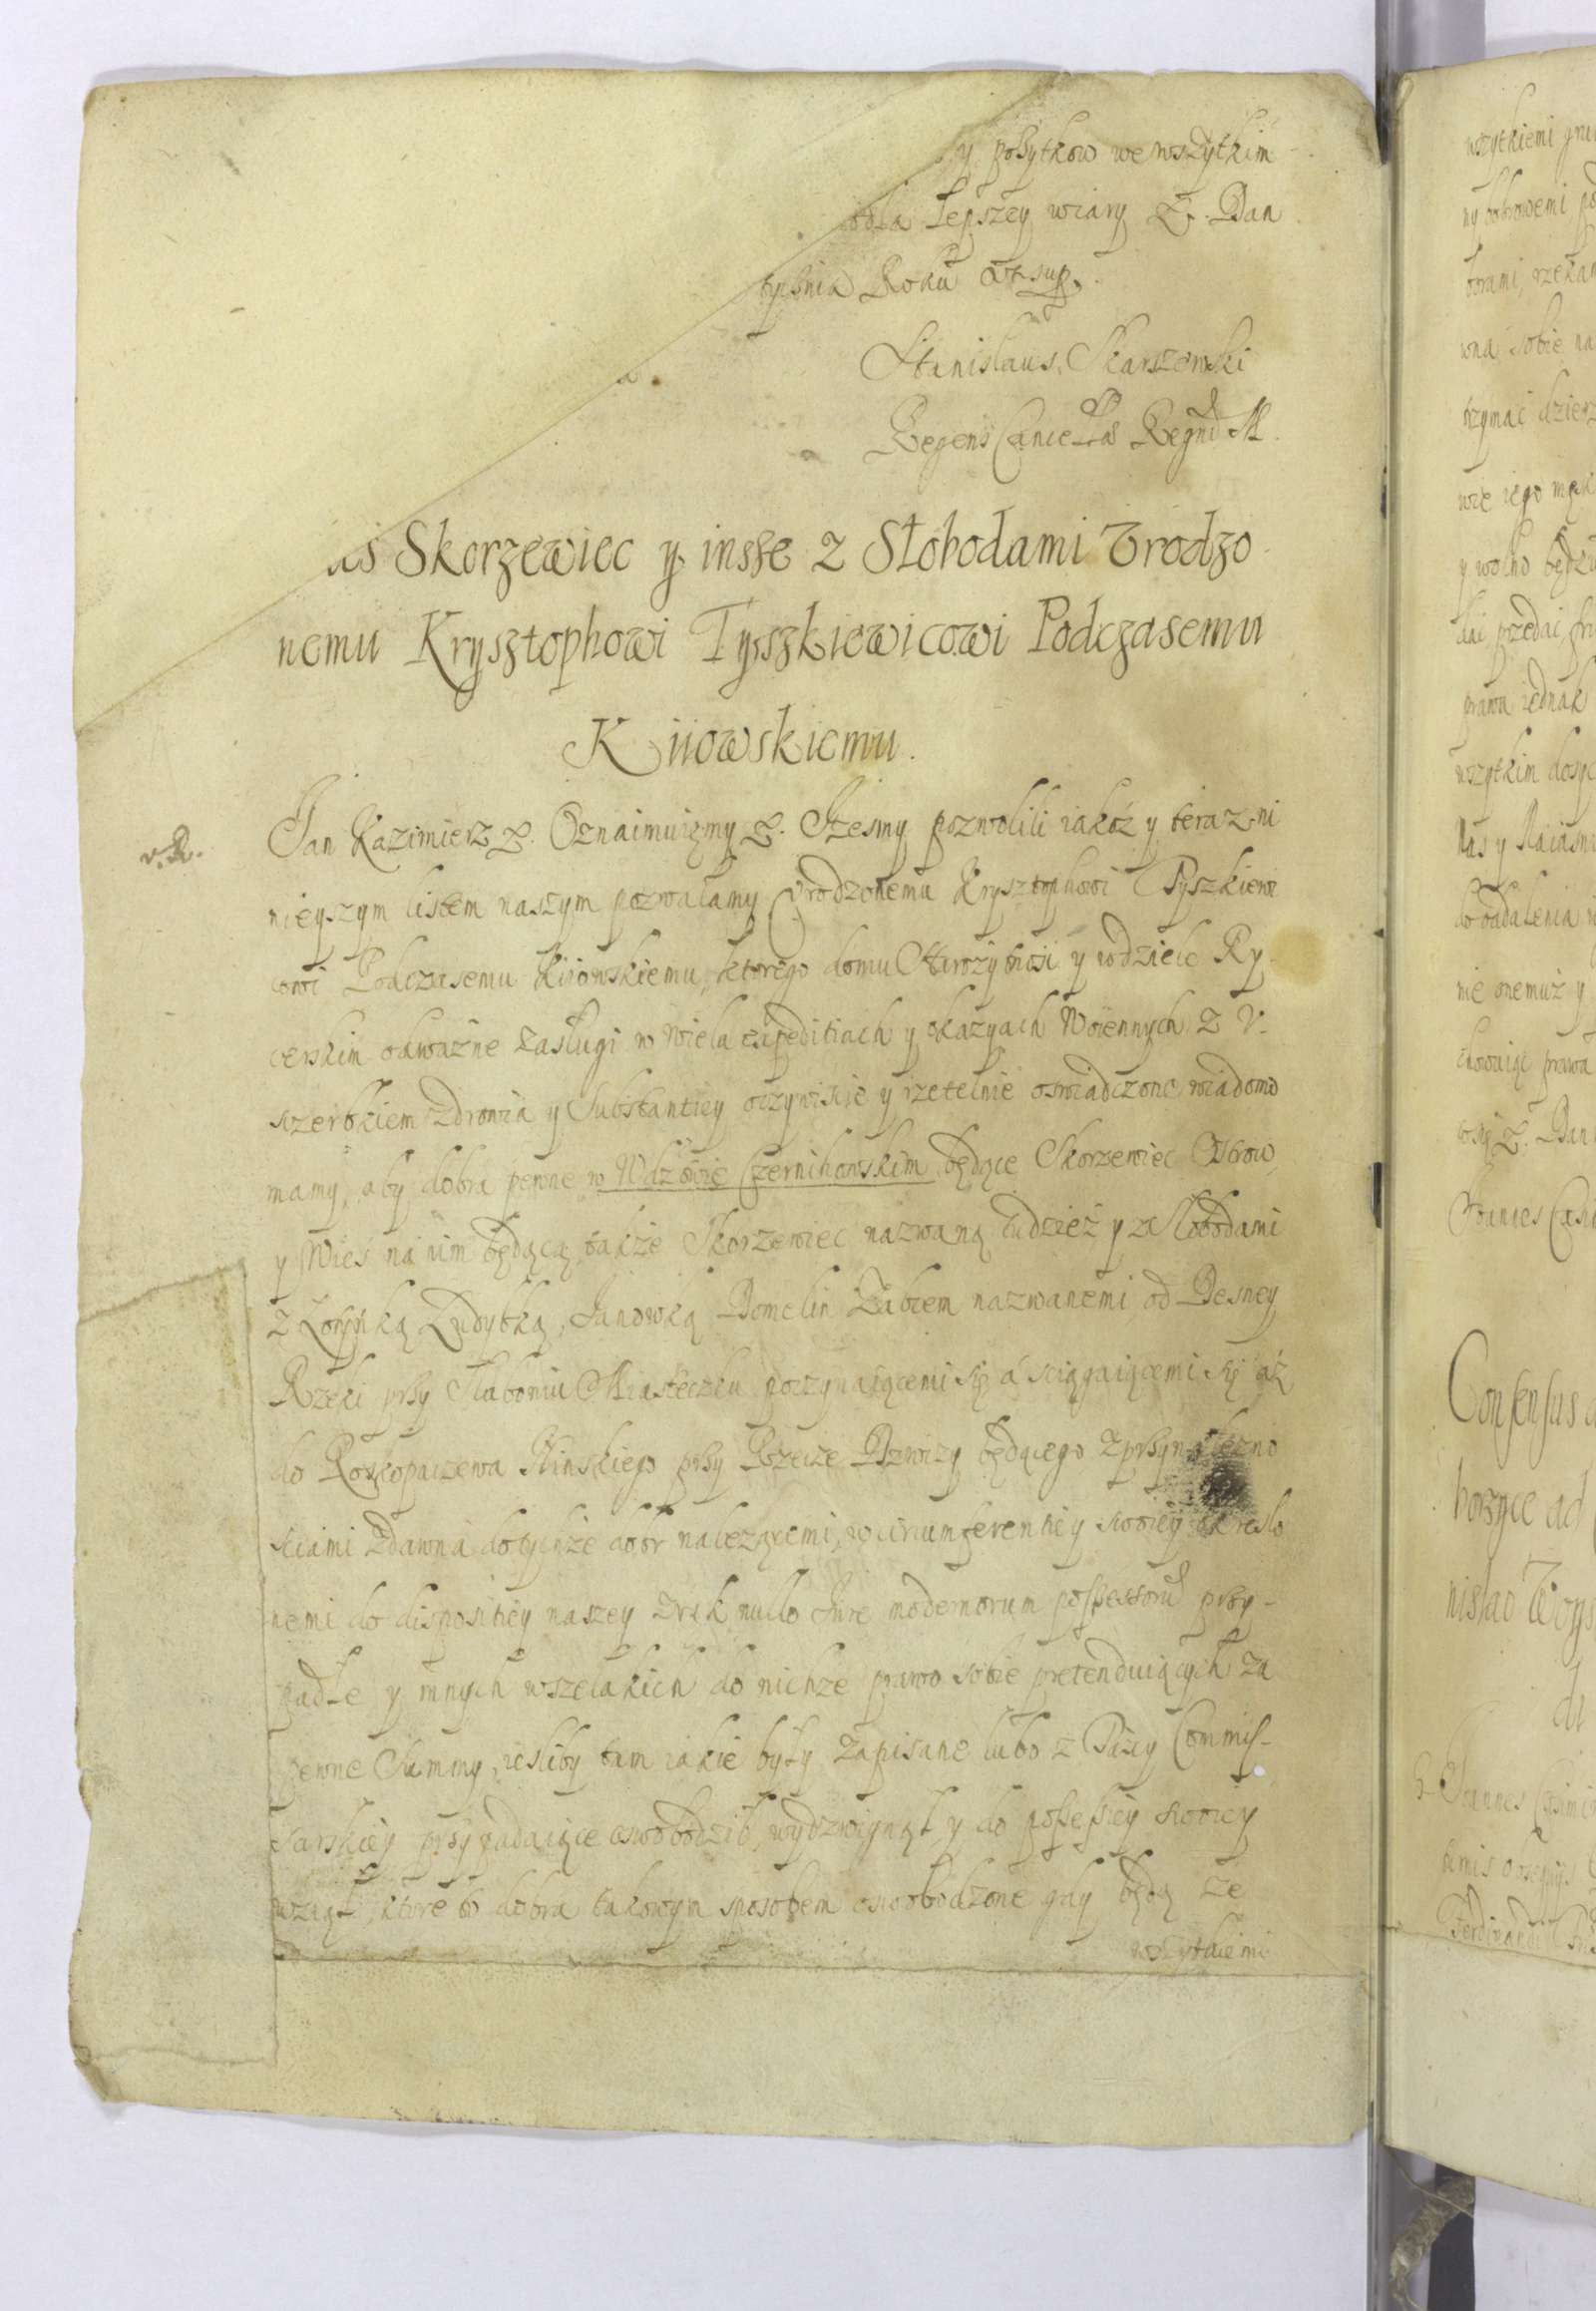 y pożytkow we wszytkim
dla lepszey wiary &. Dan
tycznia Roku ut sup.
Stanislaus Skarszewski
Regens Cancellae Regni M.
Skorzewiec y insze z Słobodami Vrodzo
nemu Krysztophowi Tyszkiewicowi Podczasemu
Kiiowskiemu.
v. R.
Jan Kazimierz &. Oznaimuięmy &. Iżesmy pozwolili iakoż y teraz ni
nieyszym listem naszym pozwalamy Vrodzonemu Krysztophowi Tyszkiewi
cowi Podczasemu Kiiowskiemu, ktorego domu starożytnosi y w dziele Ry
cerskim odważne zasługi w wielu expeditiach y okazyach Woiennych z v-
sczerbkiem zdrowia y substantiey oczywiscie y rzetelnie oswiadczone wiadomo
mamy, aby dobra pewne w Wdztwie Czernihowskim będące Skorzewiec Ostrow
y Wies na nim będącą, także Skorzewiec nazwaną tudzież y z Słobodami
z Łosinką Zudybką, Janowką Domelin Zabrem nazwanemi od Desney
Rzeki przy Słaboniu Miasteczku poczynaiącemi się a sciągaiącemi się aż
do Roskopaczewa Minskiego przy Rzecze Dzwizy będącego z przynależno
sciami zdawna do tychże dobr należącemi, w circumferentiey swoiey okreslo
nemi do dispositiey naszey z rąk nullo Iure modernorum possessorū przy-
padłe y innych wszelakich do nichże prawo sobie pretenduiących za
pewne Summy, iesliby tam iakie były zapisane lubo z Racyi Commis-
sarskiey przypadaiące oswobodził, wydzwignął y do possessiey swoiey
wziął, ktore to dobra takowym sposobem oswobodzone gdy będą ze
wszytkiemi
wszytkiemi gru
ny bobrowemi
borami, rzekam
wną sobie na
trzymać dzierż
wie iego męsk
y wolno będzie
dać przedać
prawa iednak
wszytkim dosyć
Nas y Naiasn
do oddalenia
nie onemuż y
chowuiąc prawa
&. Dan
Ioannes Casi
Consensus
howyce ad
nislao Woys
Ioannes Casimi
Ferdinandi